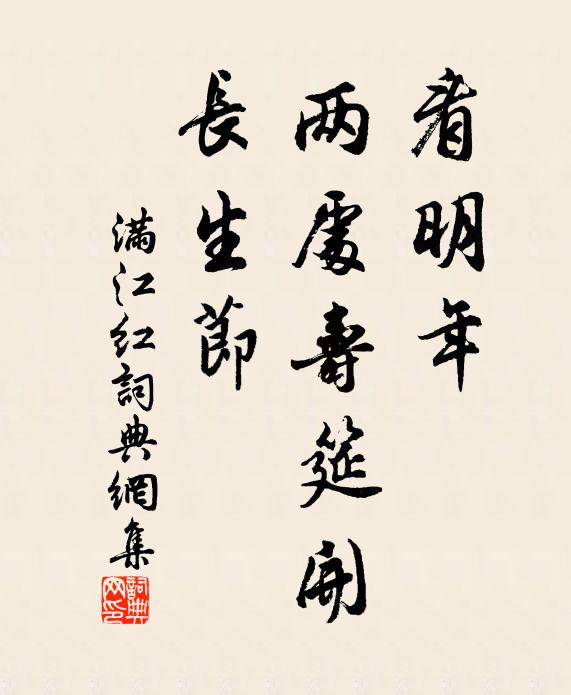 看明年
两處壽筵開
長生節
滿江紅詞典網集
詞典
网印